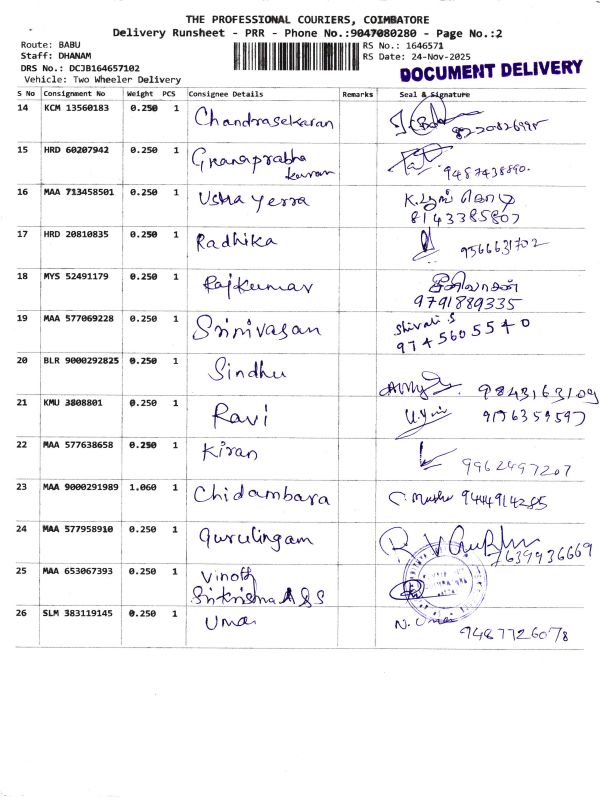 THE PROFESSIONAL COURIERS, COIMBATORE
Delivery Runsheet - PRR - Phone No.:9047080280 - Page No.:2
Route: BABU
Staff: DHANAM
DRS No.: DCJB164657102
Vehicle: Two Wheeler Delivery
RS No.: 1646571
RS Date: 24-Nov-2025
DOCUMENT DELIVERY
S No Consignment No Weight PCS Consignee Details Remarks Seal & Signature
14 KCM 13560183 0.250 1 Chandrasekaran
15 HRD 60207942 0.250 1 Gnanaprabha
karan 9487438890.
16 MAA 713458501 0.250 1 Usha yerra
8143385807
17 HRD 20810835 0.250 1 Radhika 9566631702
18 MYS 52491179 0.250 1 Rajkumar சீனிவாசன்
9791889335
19 MAA 577069228 0.250 1 Srinivasan Shivali S
9745605540
20 BLR 9000292825 0.250 1 Sindhu
9843163109
21 KMU 3808801 0.250 1 Ravi
22 MAA 577638658 0.250 1 Kiran 9962497207
23 MAA 9000291989 1.060 1 Chidambara 9444914285
24 MAA 577958910 0.250 1 Gurulingam
7639936669
25 MAA 653067393 0.250 1 Vinoth
Srikrishna A&S
26 SLM 383119145 0.250 1 Umai N. Umai
9487726078